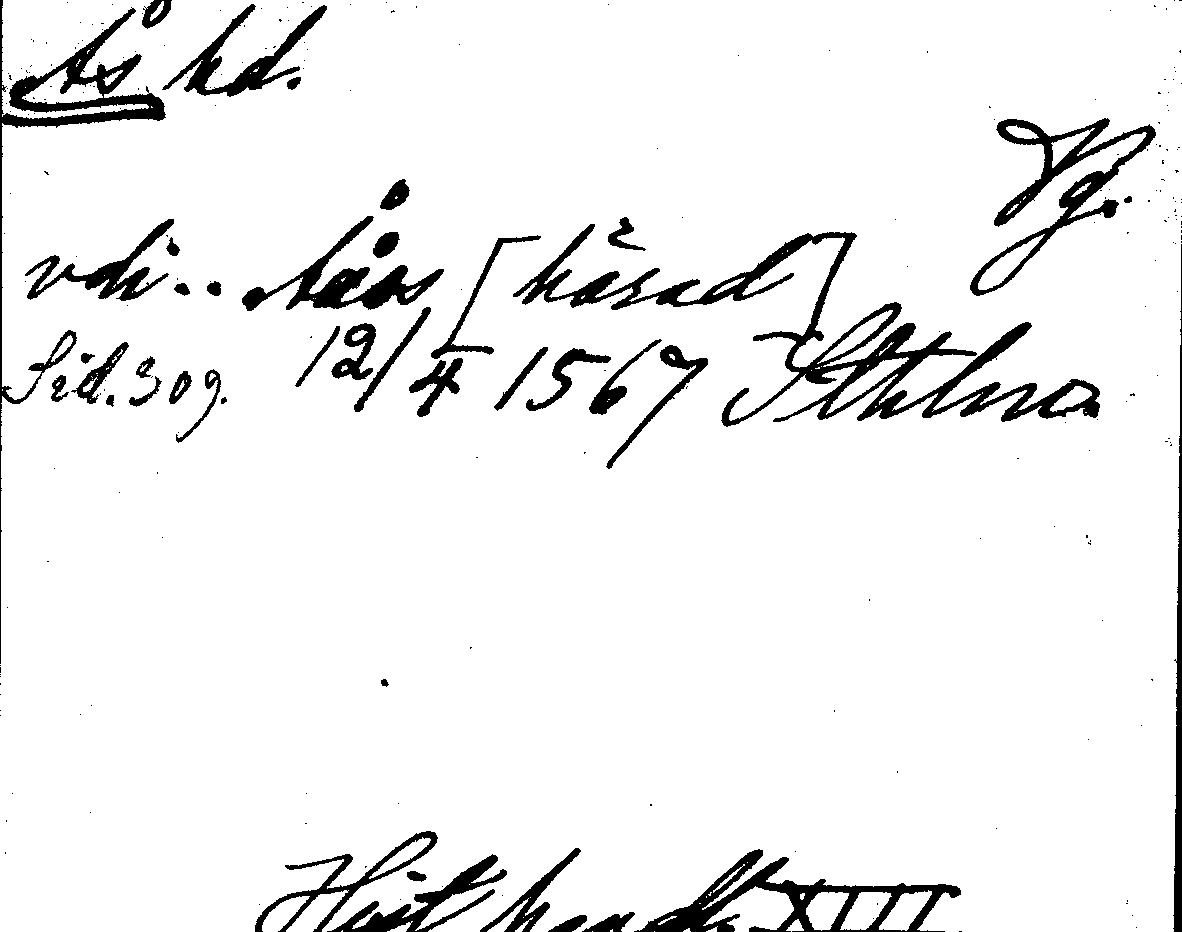 Ås hd.
Vg.
vdi .. Åås [härad]
Sid. 309. 12/4 1567 Sthlm.
Hist handl. XIII